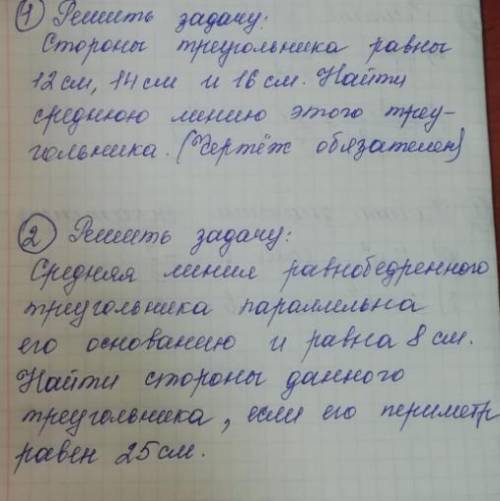 1) Решить задачу:
Стороны треугольника равны
12 см, 14 см и 16 см. Найти
среднюю линию этого треу-
гольника. (Чертёж обязателен)
2) Решить задачу:
Средняя линия равнобедренного
треугольника параллельна
его основанию и равна 8 см.
Найти стороны данного
треугольника, если его периметр
равен 25 см.